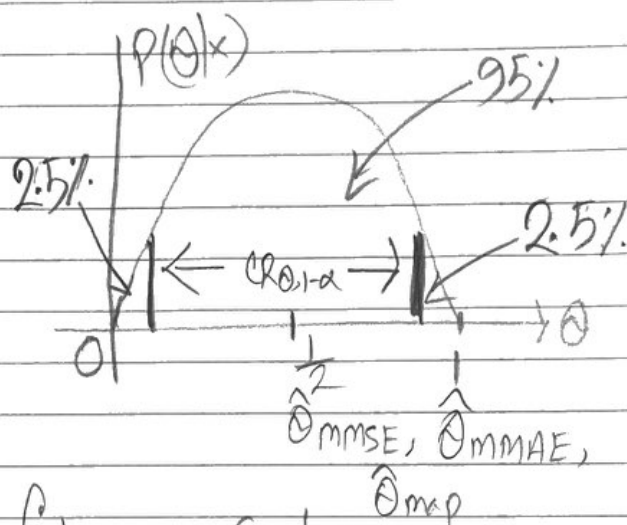 P(θ|x)
95%
2.5%
2.5%
CRθ,1-α
0
θ
1/2
1
θ̂MMSE, θ̂MMAE,
θ̂map